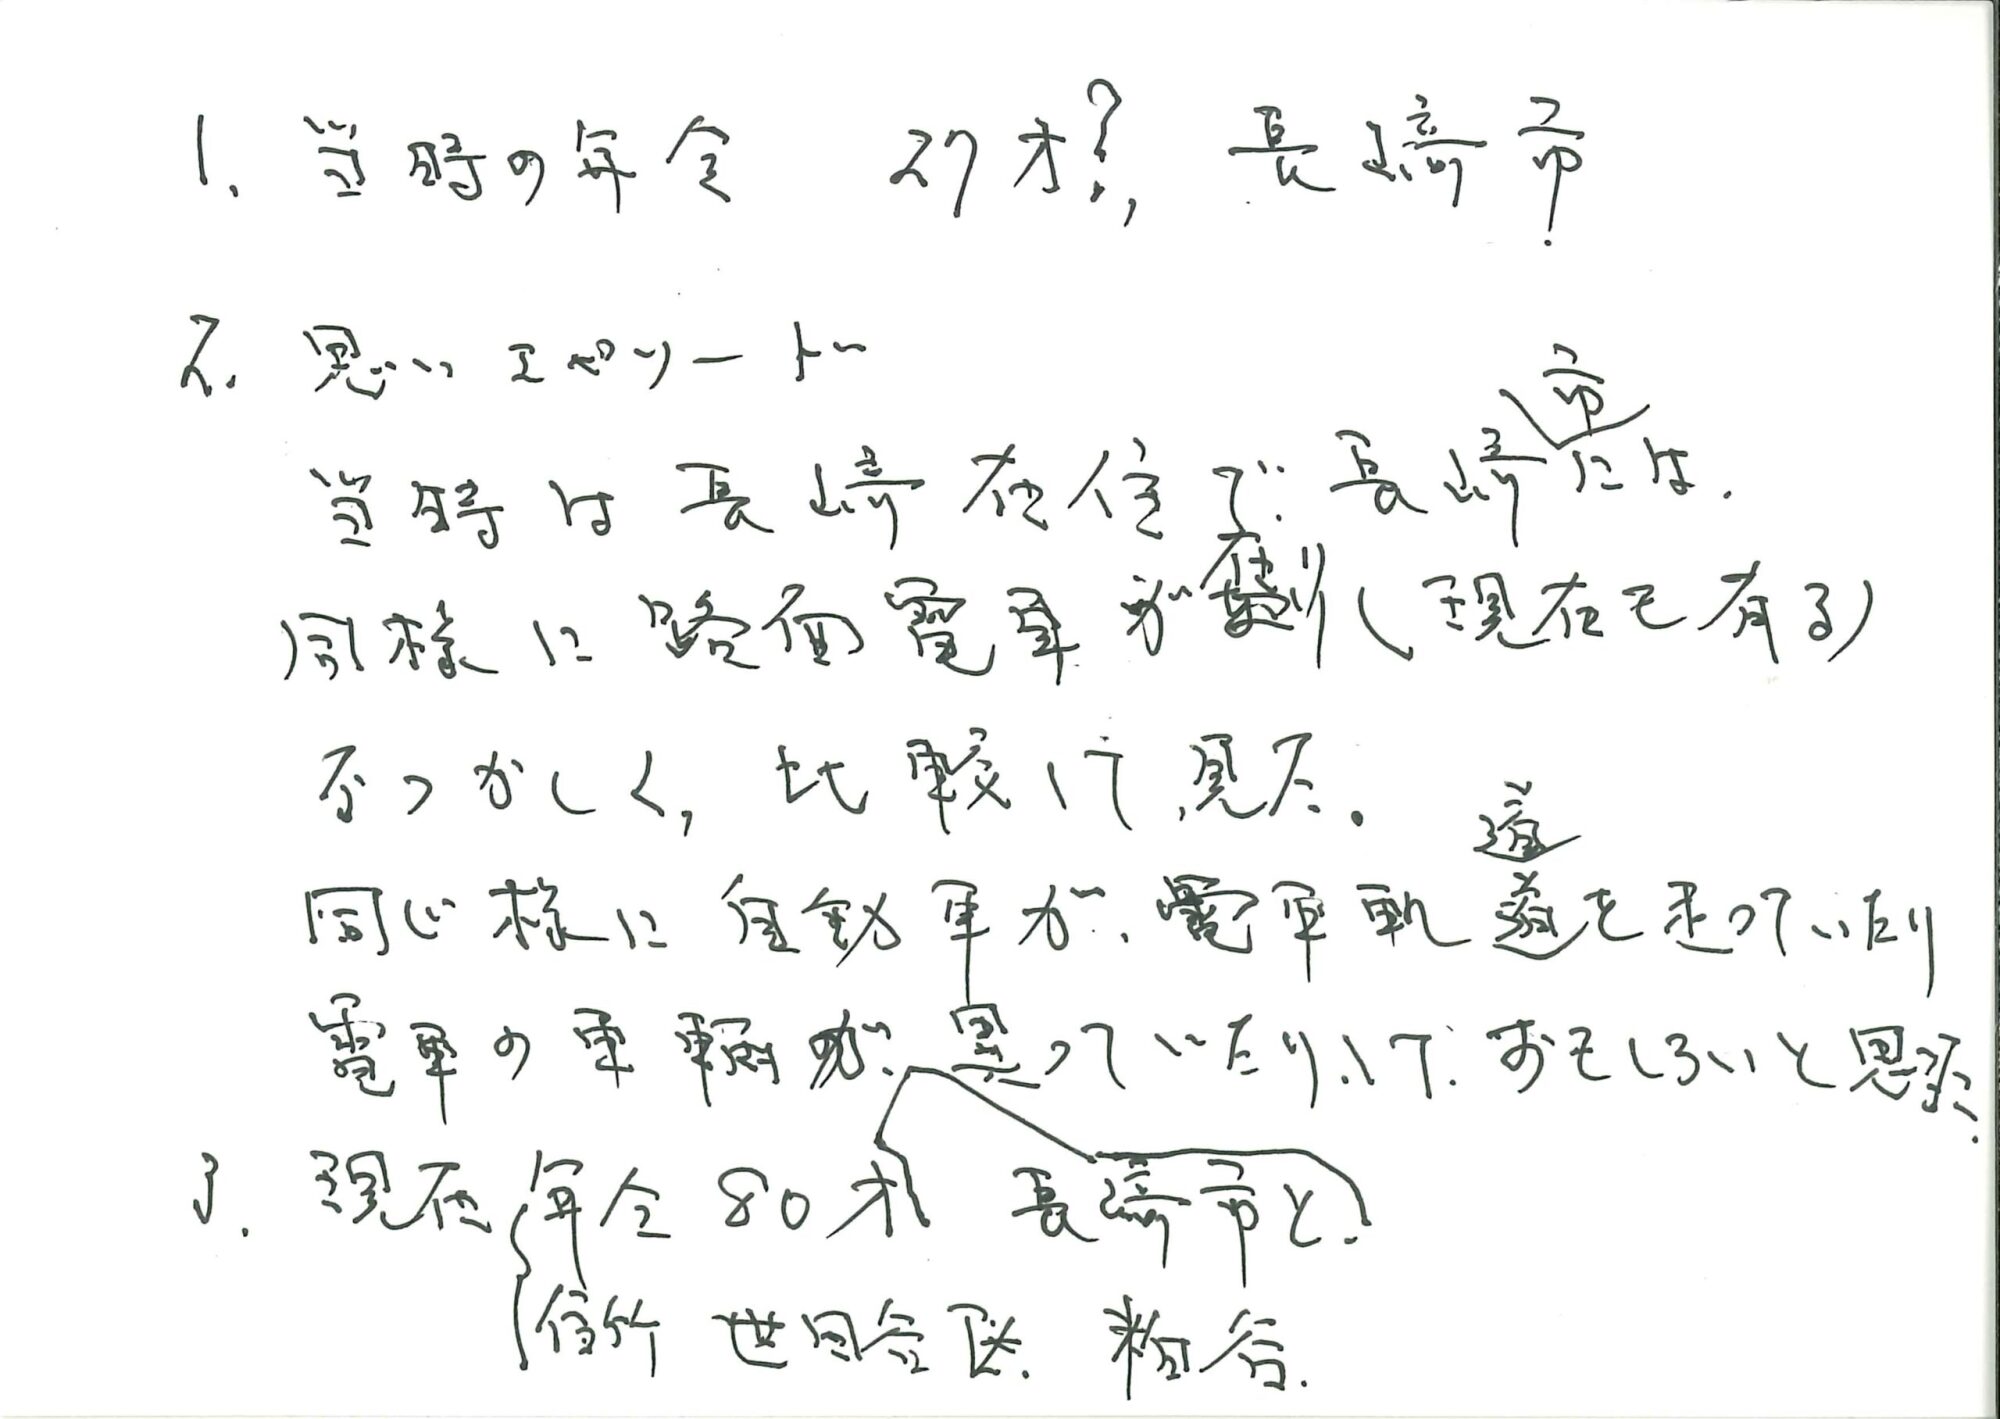 1. 当時の年令 27才?, 長崎市.
2. 思い エピソード
当時は長崎在住で. 長崎市には.
同様に路面電車が在り(現在も有る)
なつかしく, 比較して見た.
同じ様に自動車が、電車軌道を走っていたり
電車の車輛が、長崎市と異っていたりして. おもしろいと思った.
3. 現在 年令 80才
住所 世田谷区. 粕谷.